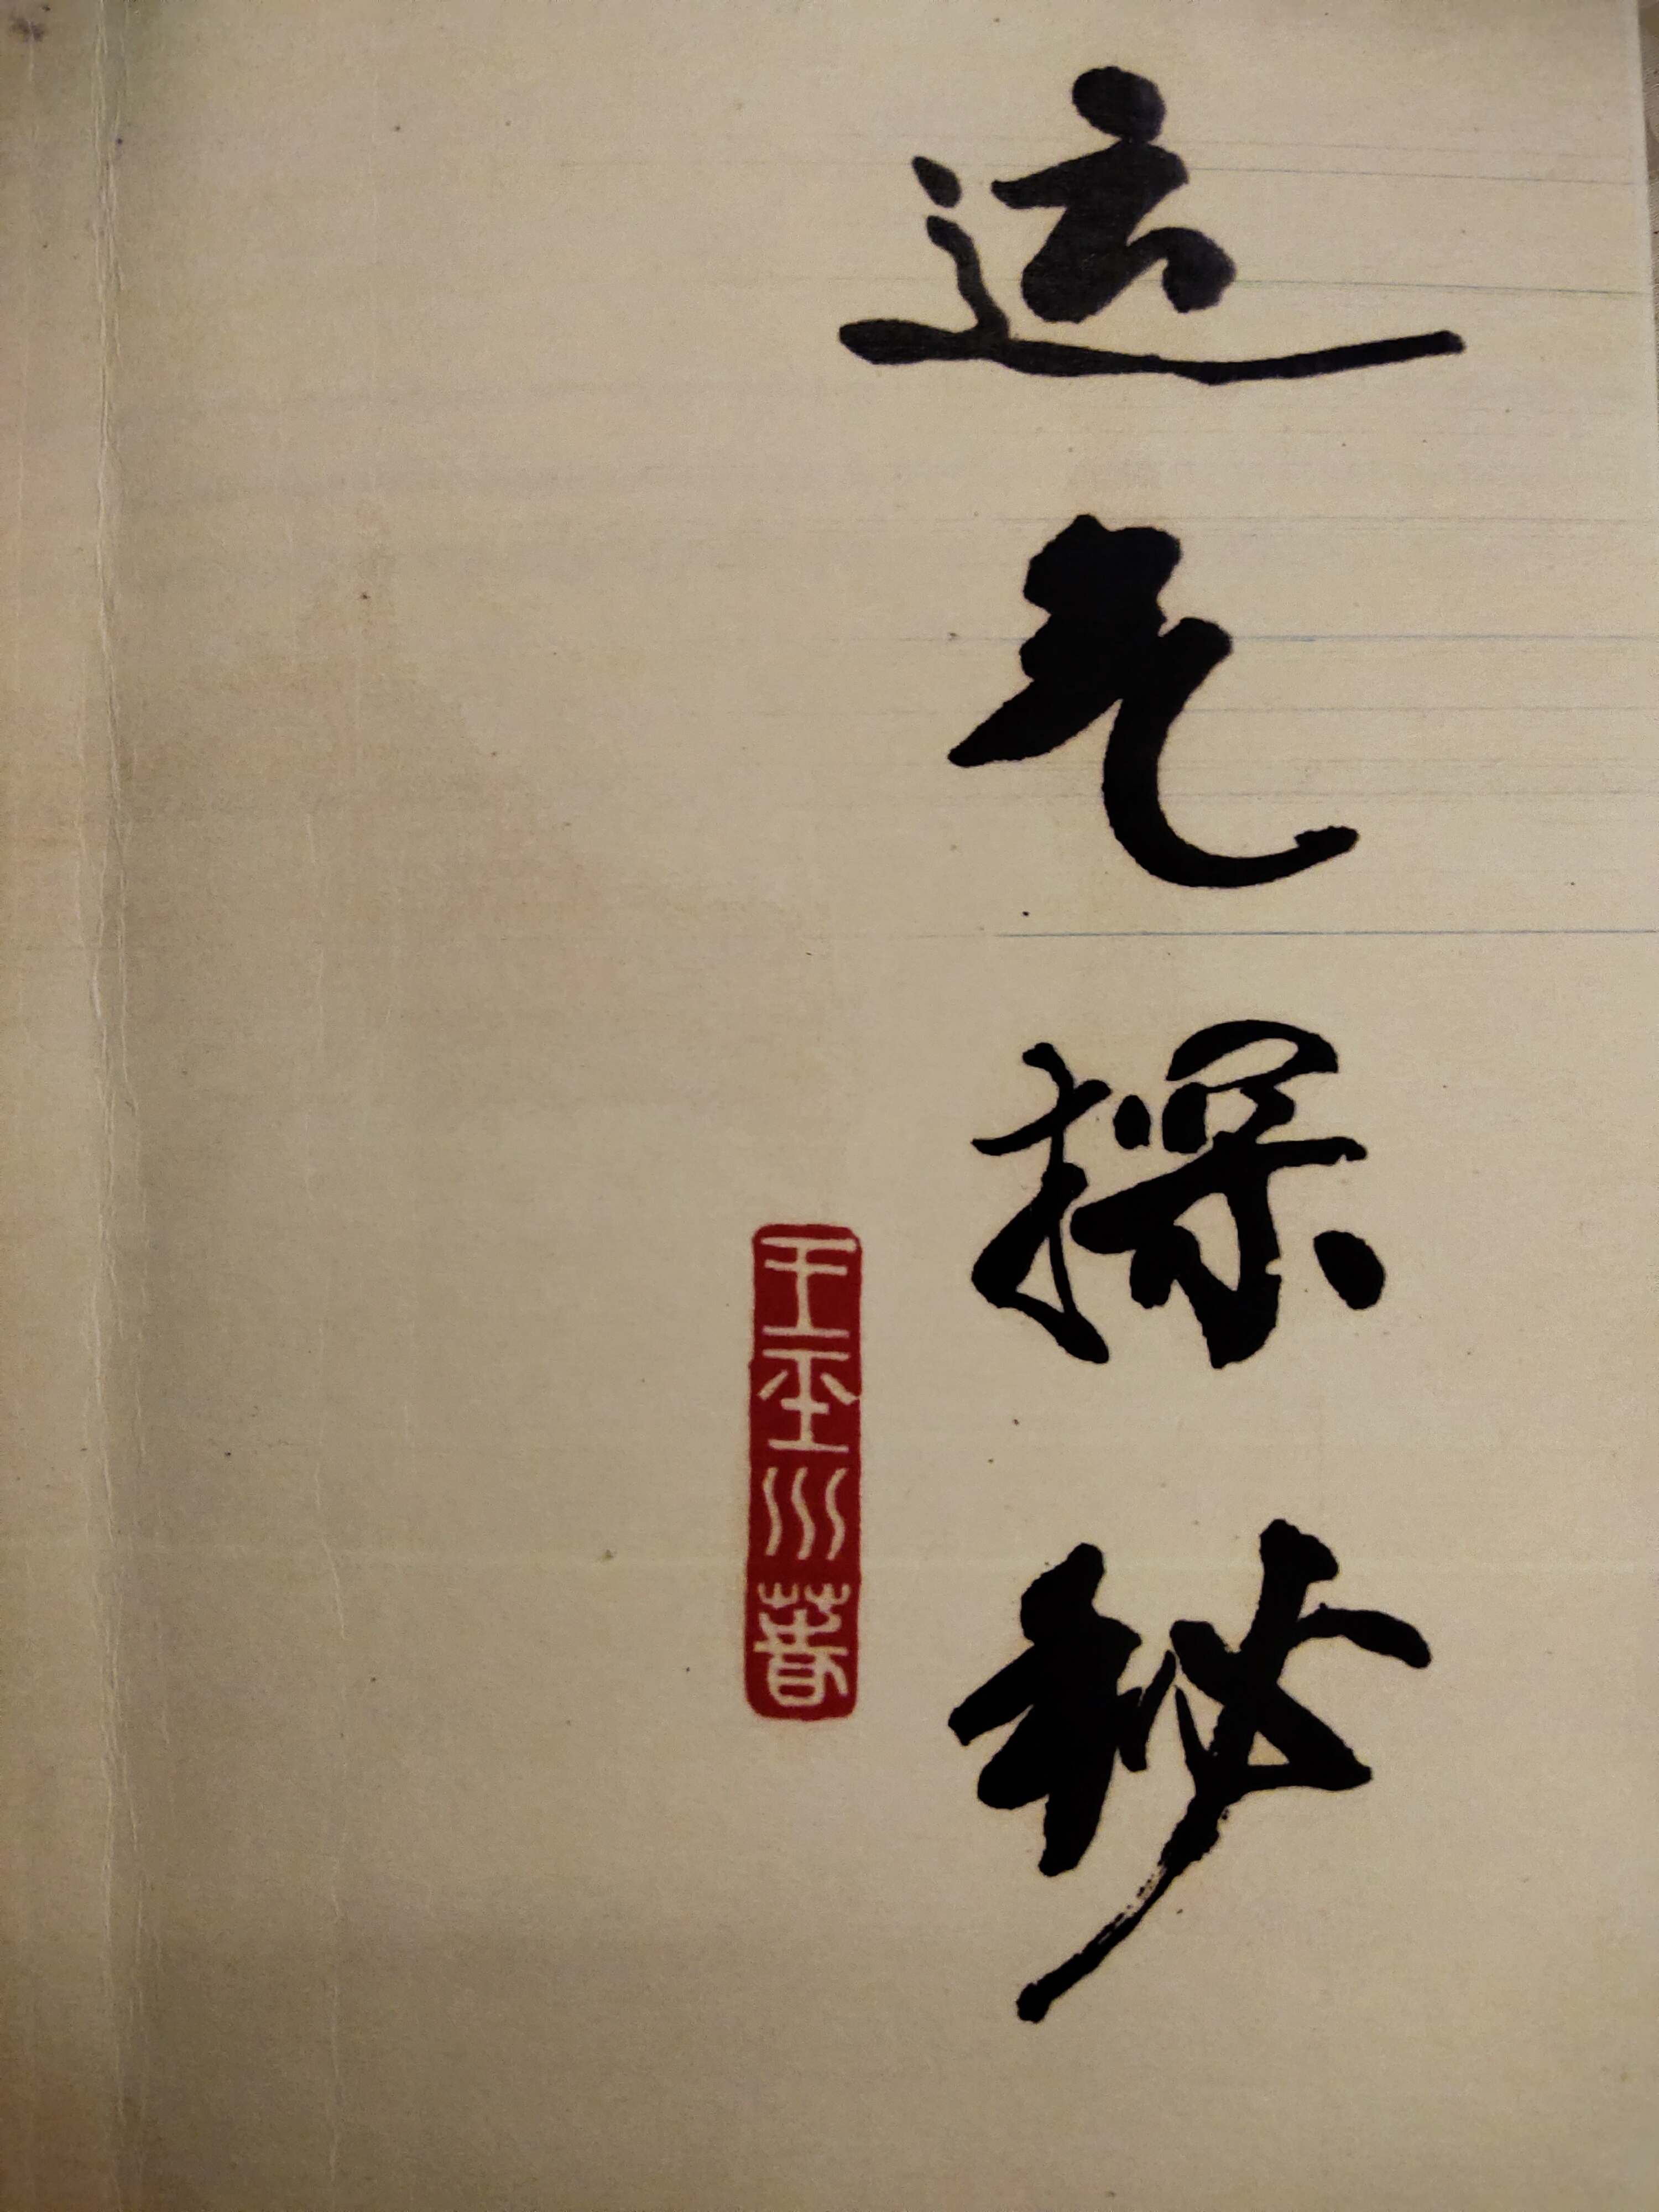 运气探秘
王玉川著